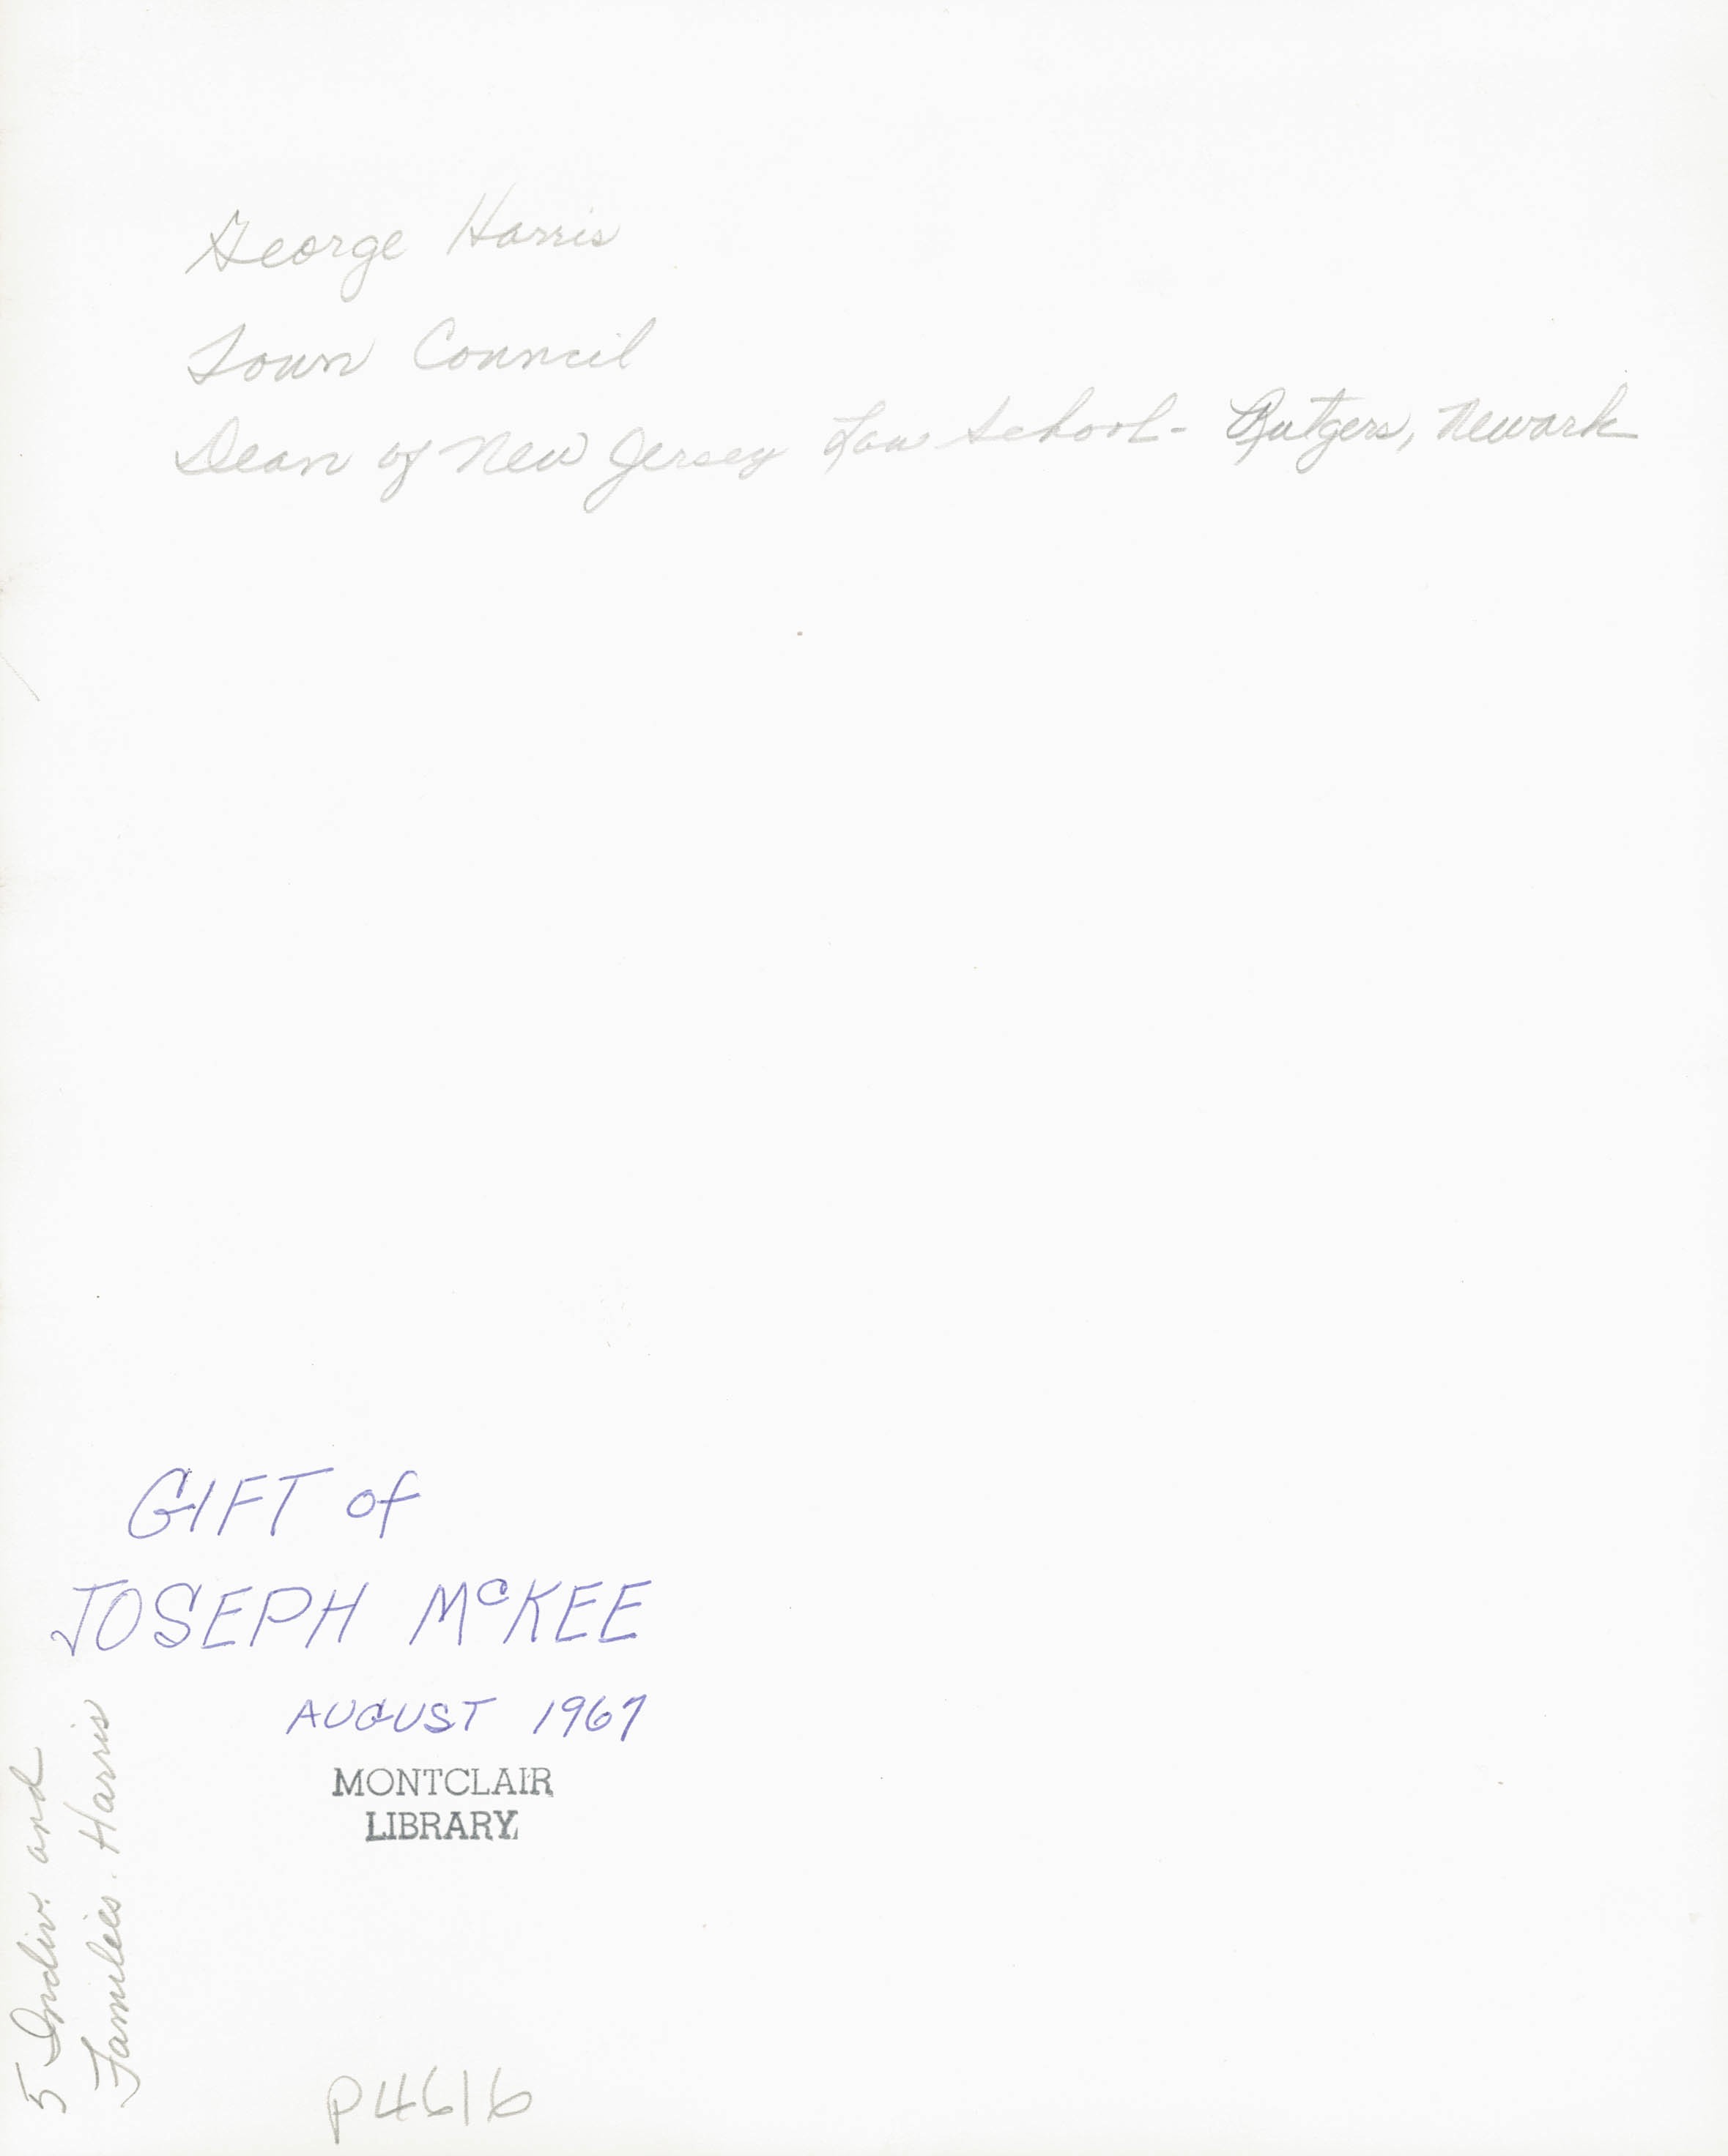 George Harris
Town Council
Dean of New Jersey Law School - Rutgers, Newark
GIFT of
JOSEPH McKEE
AUGUST 1967
MONTCLAIR
LIBRARY
5 Indiv. and
Families. Harris
P4616